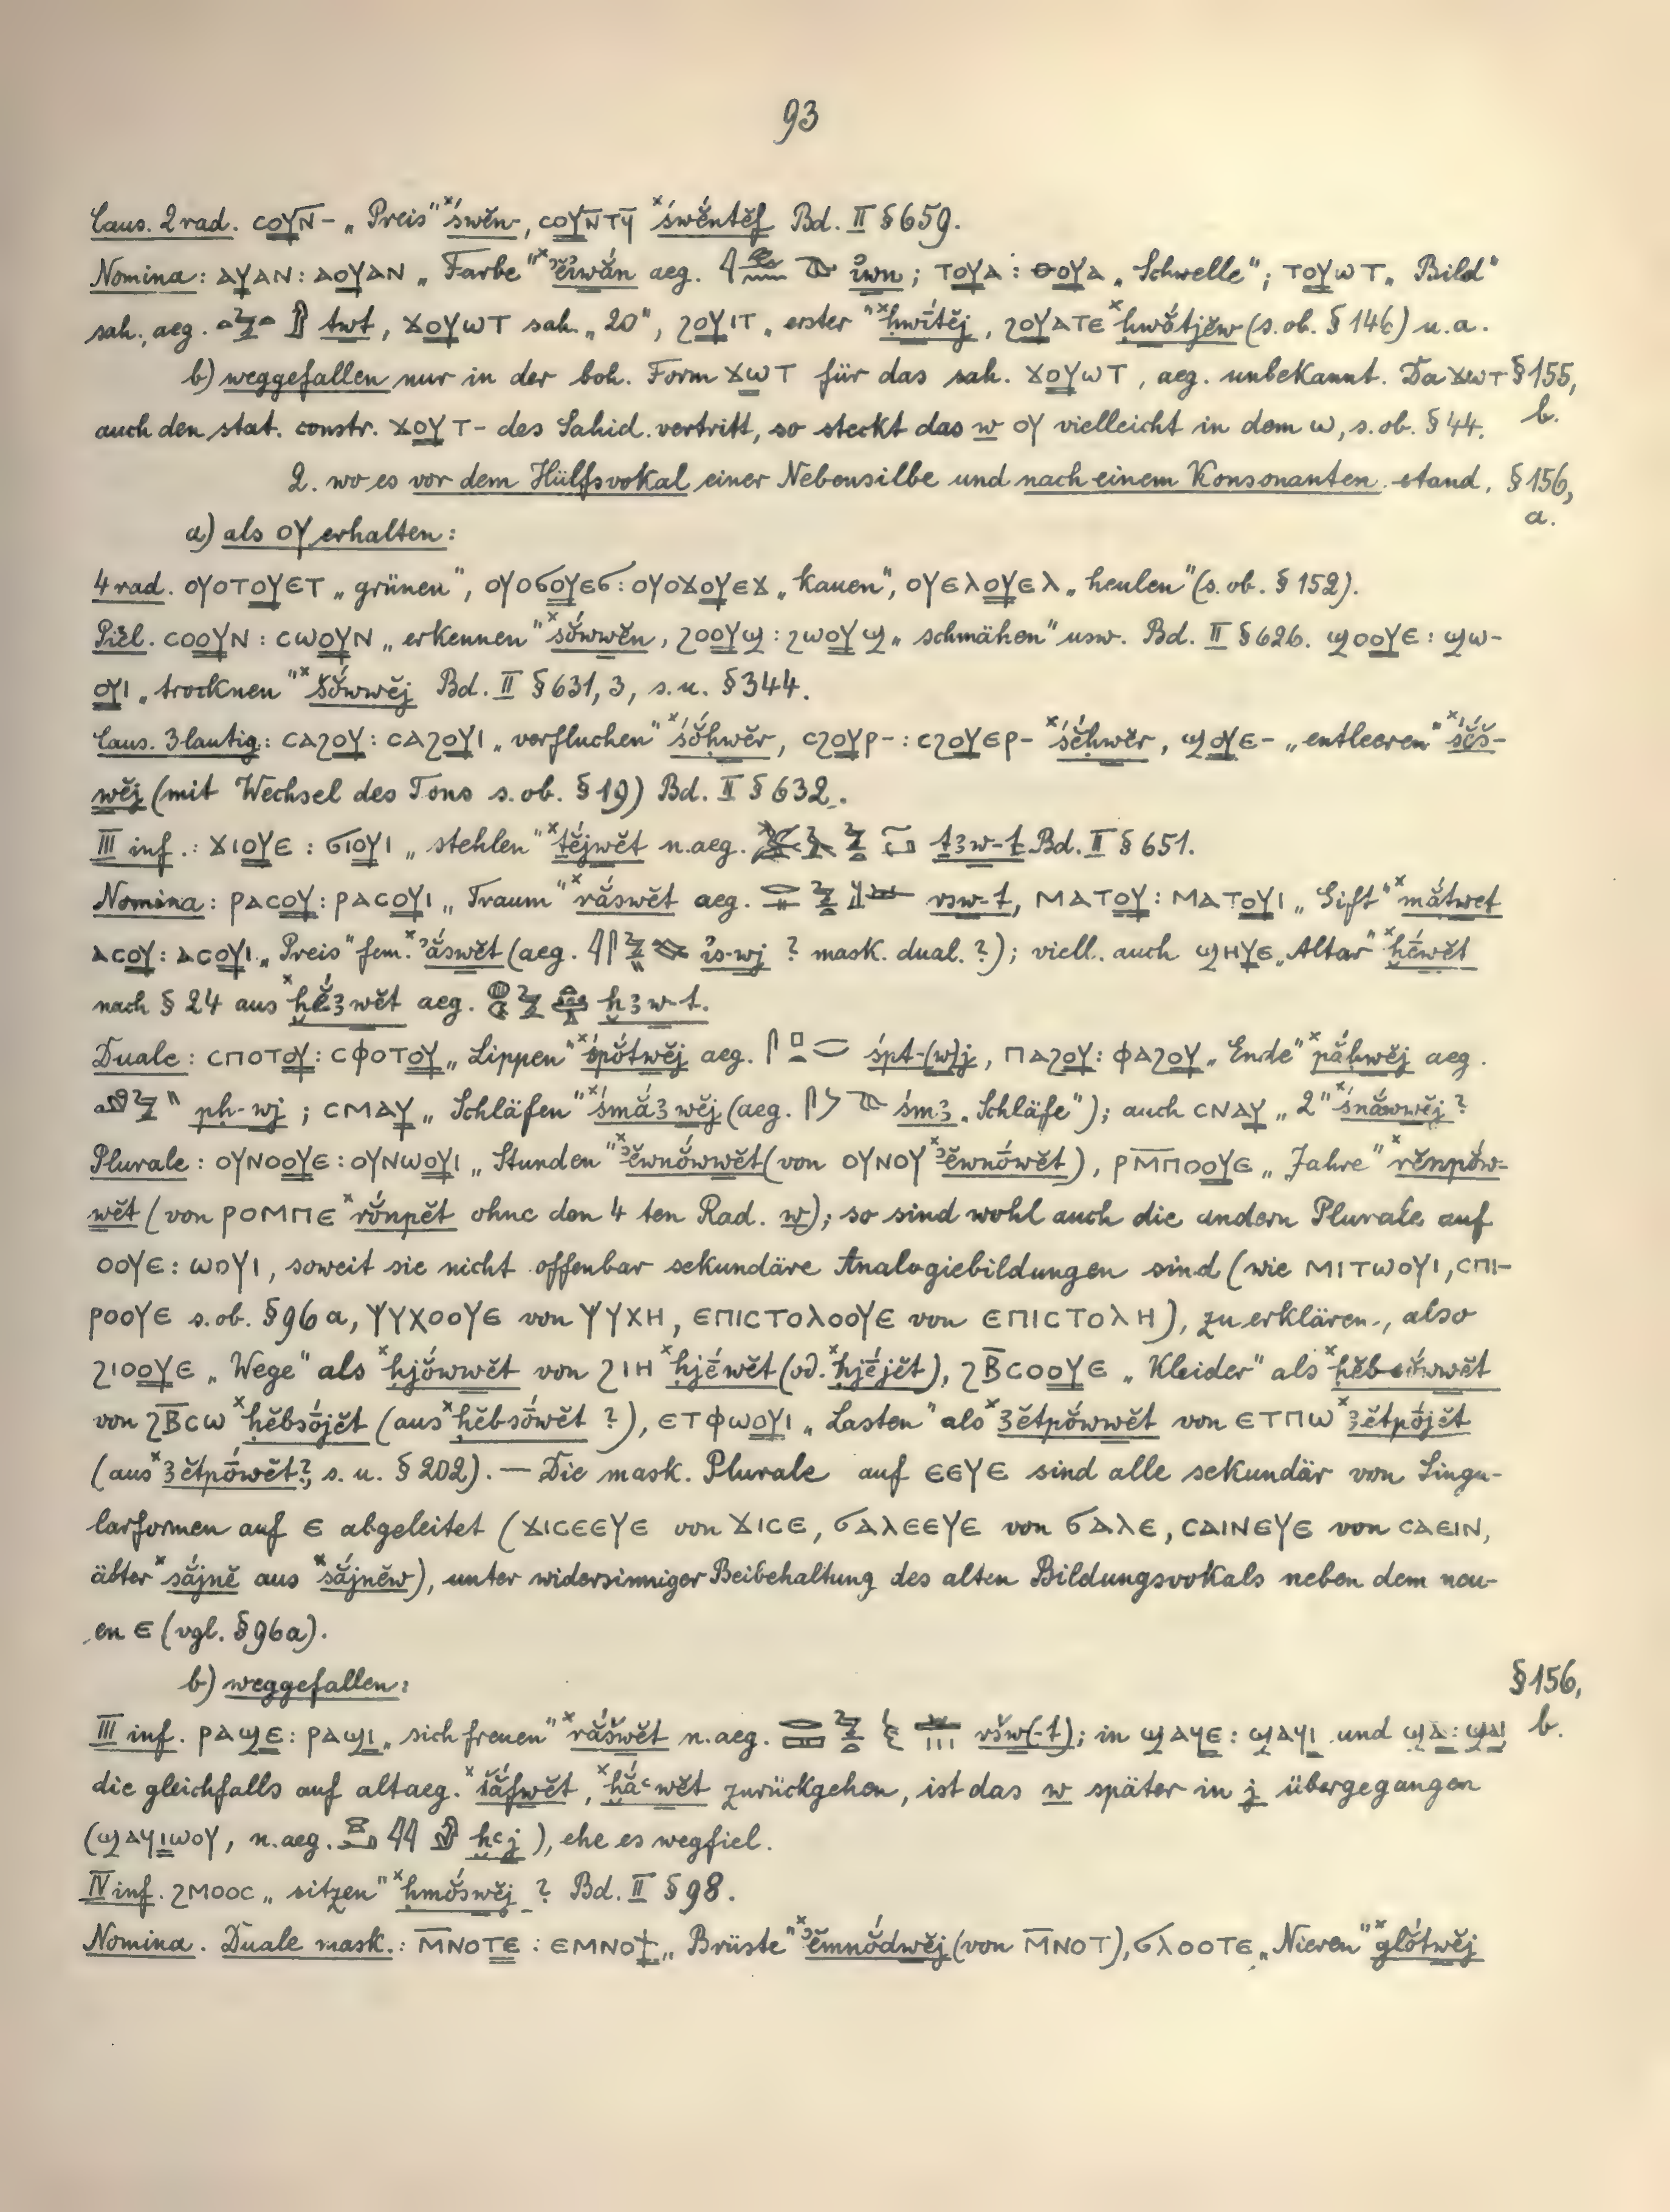 93
Caus. 2 rad. ⲥⲟⲩⲛ̄- „Preis“ ˣśwĕn-, ⲥⲟⲩⲛ̄ⲧϥ̄ ˣśwĕntĕf Bd. II § 659.
Nomina: ⲁⲩⲁⲛ: ⲁⲟⲩⲁⲛ „Farbe“ aeg. ỉwn; ⲧⲟⲩⲁ: ⲑⲟⲩⲁ „Schwelle“; ⲧⲟⲩⲱⲧ „Bild“
sah., aeg. twt, ϫⲟⲩⲱⲧ sah. „20“, ϩⲟⲩⲓⲧ „erster“ ˣḥwı̆́tĕj, ϩⲟⲩⲁⲧⲉ ˣḥwắtjĕw (s. ob. § 146) u. a.
b) weggefallen nur in der boh. Form ϫⲱⲧ für das sah. ϫⲟⲩⲱⲧ, aeg. unbekannt. Da ϫⲱⲧ § 155,
auch den stat. constr. ϫⲟⲩⲧ- des Sahid. vertritt, so steckt das w ⲟⲩ vielleicht in dem ⲱ, s. ob. § 44. b.
2. wo es vor dem Hülfsvokal einer Nebensilbe und nach einem Konsonanten stand. § 156,
a.
a) als ⲟⲩ erhalten:
4 rad. ⲟⲩⲟⲧⲟⲩⲉⲧ „grünen“, ⲟⲩⲟϭⲟⲩⲉϭ: ⲟⲩⲟϫⲟⲩⲉϫ „kauen“, ⲟⲩⲉⲗⲟⲩⲉⲗ „heulen“ (s. ob. § 152).
Piĕl. ⲥⲟⲟⲩⲛ: ⲥⲱⲟⲩⲛ „erkennen“ ˣsŏ́wwĕn, ϩⲟⲟⲩϣ: ϩⲱⲟⲩϣ „schmähen“ usw. Bd. II § 626. ϣⲟⲟⲩⲉ: ϣⲱ-
ⲟⲩⲓ „trocknen“ ˣšŏ́wwĕj Bd. II § 631, 3, s. u. § 344.
Caus. 3 lautig: ⲥⲁϩⲟⲩ: ⲥⲁϩⲟⲩⲓ „verfluchen“ ˣśŏ́ḥwĕr, ⲥϩⲟⲩⲣ-: ⲥϩⲟⲩⲉⲣ- ˣśĕ́ḥwĕr, ϣⲟⲩⲉ- „entleeren“ ˣśĕ́š-
wĕj (mit Wechsel des Tons s. ob. § 19) Bd. II § 632.
III inf.: ϫⲓⲟⲩⲉ: ϭⲓⲟⲩⲓ „stehlen“ ˣṯĕ́jwĕt n. aeg. ṯꜣw-t Bd. II § 651.
Nomina: ⲣⲁⲥⲟⲩ: ⲣⲁⲥⲟⲩⲓ „Traum“ ˣrắswĕt aeg. rsw-t, ⲙⲁⲧⲟⲩ: ⲙⲁⲧⲟⲩⲓ „Gift“ ˣmắtwet
ⲁⲥⲟⲩ: ⲁⲥⲟⲩⲓ „Preis“ fem. ˣꜣắswĕt (aeg. ỉs-wj ? mask. dual. ?); viell. auch ϣⲏⲩⲉ „Altar“ ˣḫḗwĕt
nach § 24 aus ˣḫĕ́ꜣwĕt aeg. ḫꜣw-t.
Duale: ⲥⲡⲟⲧⲟⲩ: ⲥⲫⲟⲧⲟⲩ „Lippen“ ˣśpŏ́twĕj aeg. śpt-(w)j, ⲡⲁϩⲟⲩ: ⲫⲁϩⲟⲩ „Ende“ ˣpắḥwĕj aeg.
pḥ-wj; ⲥⲙⲁⲩ „Schläfen“ ˣśmắꜣwĕj (aeg. śmꜣ „Schläfe“); auch ⲥⲛⲁⲩ „2“ ˣśnắwwĕj ?
Plurale: ⲟⲩⲛⲟⲟⲩⲉ: ⲟⲩⲛⲱⲟⲩⲓ „Stunden“ ˣꜣĕwnŏ́wwĕt (von ⲟⲩⲛⲟⲩ ˣꜣĕwnṓwĕt), ⲣⲙ̄ⲡⲟⲟⲩⲉ „Jahre“ ˣrĕnpŏ́w-
wĕt (von ⲣⲟⲙⲡⲉ ˣrŏ́npĕt ohne den 4 ten Rad. w); so sind wohl auch die andern Plurale auf
ⲟⲟⲩⲉ: ⲱⲟⲩⲓ, soweit sie nicht offenbar sekundäre Analogiebildungen sind (wie ⲙⲓⲧⲱⲟⲩⲓ, ⲥⲡⲓ-
ⲣⲟⲟⲩⲉ s. ob. § 96 a, ⲯⲩⲭⲟⲟⲩⲉ von ⲯⲩⲭⲏ, ⲉⲡⲓⲥⲧⲟⲗⲟⲟⲩⲉ von ⲉⲡⲓⲥⲧⲟⲗⲏ), zu erklären, also
ϩⲓⲟⲟⲩⲉ „Wege“ als ˣḥjŏ́wwĕt von ϩⲓⲏ ˣḥjḗwĕt (od. ˣḥjḗjĕt), ϩⲃ̄ⲥⲟⲟⲩⲉ „Kleider“ als ˣḥĕbsŏ́wwĕt
von ϩⲃ̄ⲥⲱ ˣḥĕbsṓjĕt (aus ˣḥĕbsṓwĕt ?), ⲉⲧⲫⲱⲟⲩⲓ „Lasten“ als ˣꜣĕtpŏ́wwĕt von ⲉⲧⲡⲱ ˣꜣĕtpṓjĕt
(aus ˣꜣĕtpṓwĕt ?, s. u. § 202). — Die mask. Plurale auf ⲉⲉⲩⲉ sind alle sekundär von Singu-
larformen auf ⲉ abgeleitet (ϫⲓⲥⲉⲉⲩⲉ von ϫⲓⲥⲉ, ϭⲁⲗⲉⲉⲩⲉ von ϭⲁⲗⲉ, ⲥⲁⲓⲛⲉⲩⲉ von ⲥⲁⲉⲓⲛ,
älter ˣsắjnĕ aus ˣsắjnĕw), unter widersinniger Beibehaltung des alten Bildungsvokals neben dem neu-
en ⲉ (vgl. § 96a).
b) weggefallen: § 156,
III inf. ⲣⲁϣⲉ: ⲣⲁϣⲓ „sich freuen“ ˣrắšwĕt n. aeg. ršw(-t); in ϣⲁϥⲉ: ϣⲁϥⲓ und ϣⲁ: ϣⲁⲓ b.
die gleichfalls auf altaeg. ˣšắfwĕt, ˣḫắꜥwĕt zurückgehen, ist das w später in j übergegangen
(ϣⲁϥⲓⲱⲟⲩ, n. aeg. ḫꜥj), ehe es wegfiel.
IV inf. ϩⲙⲟⲟⲥ „sitzen“ ˣḥmŏ́swĕj ? Bd. II § 98.
Nomina. Duale mask.: ⲙ̄ⲛⲟⲧⲉ: ⲉⲙⲛⲟϯ „Brüste“ ˣꜣĕmnŏ́dwĕj (von ⲙ̄ⲛⲟⲧ), ϭⲗⲟⲟⲧⲉ „Nieren“ ˣglŏ́twĕj